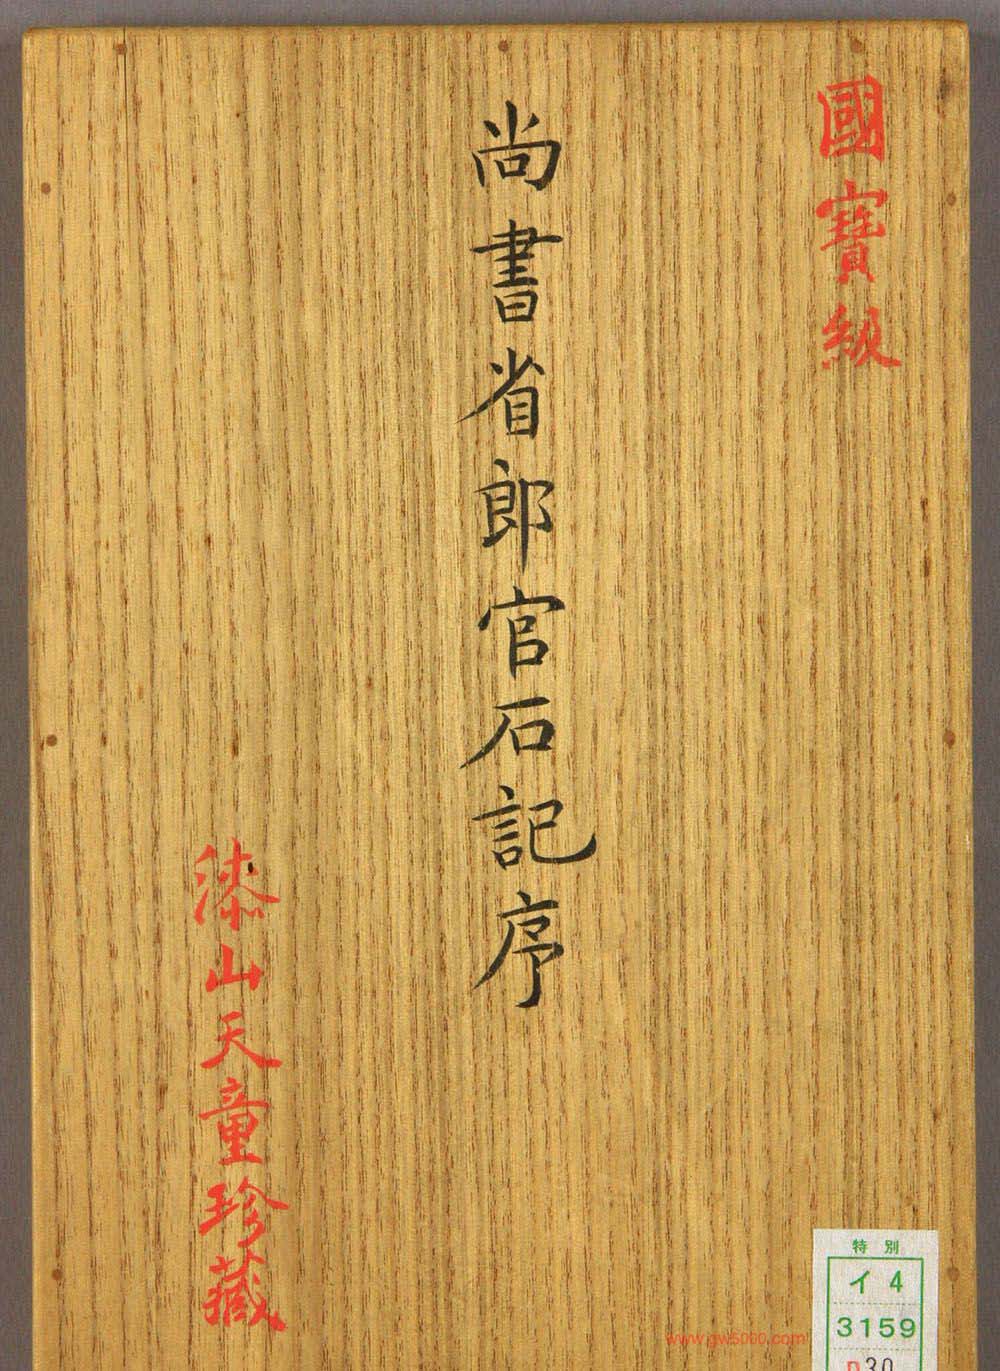 國寶級
尚書省郎官石記序
漆山天童珍藏
特別
イ4
3159
www.gw5000.com